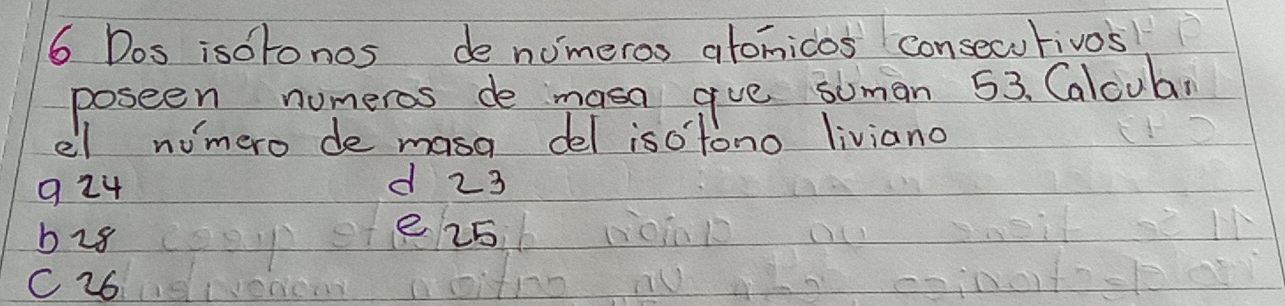 6 Dos isótonos de números atómicos consecutivos
poseen numeros de masa que suman 53. Calcular
el número de masa del isótono liviano
a 24 d 23
b 28 e 25
c 26